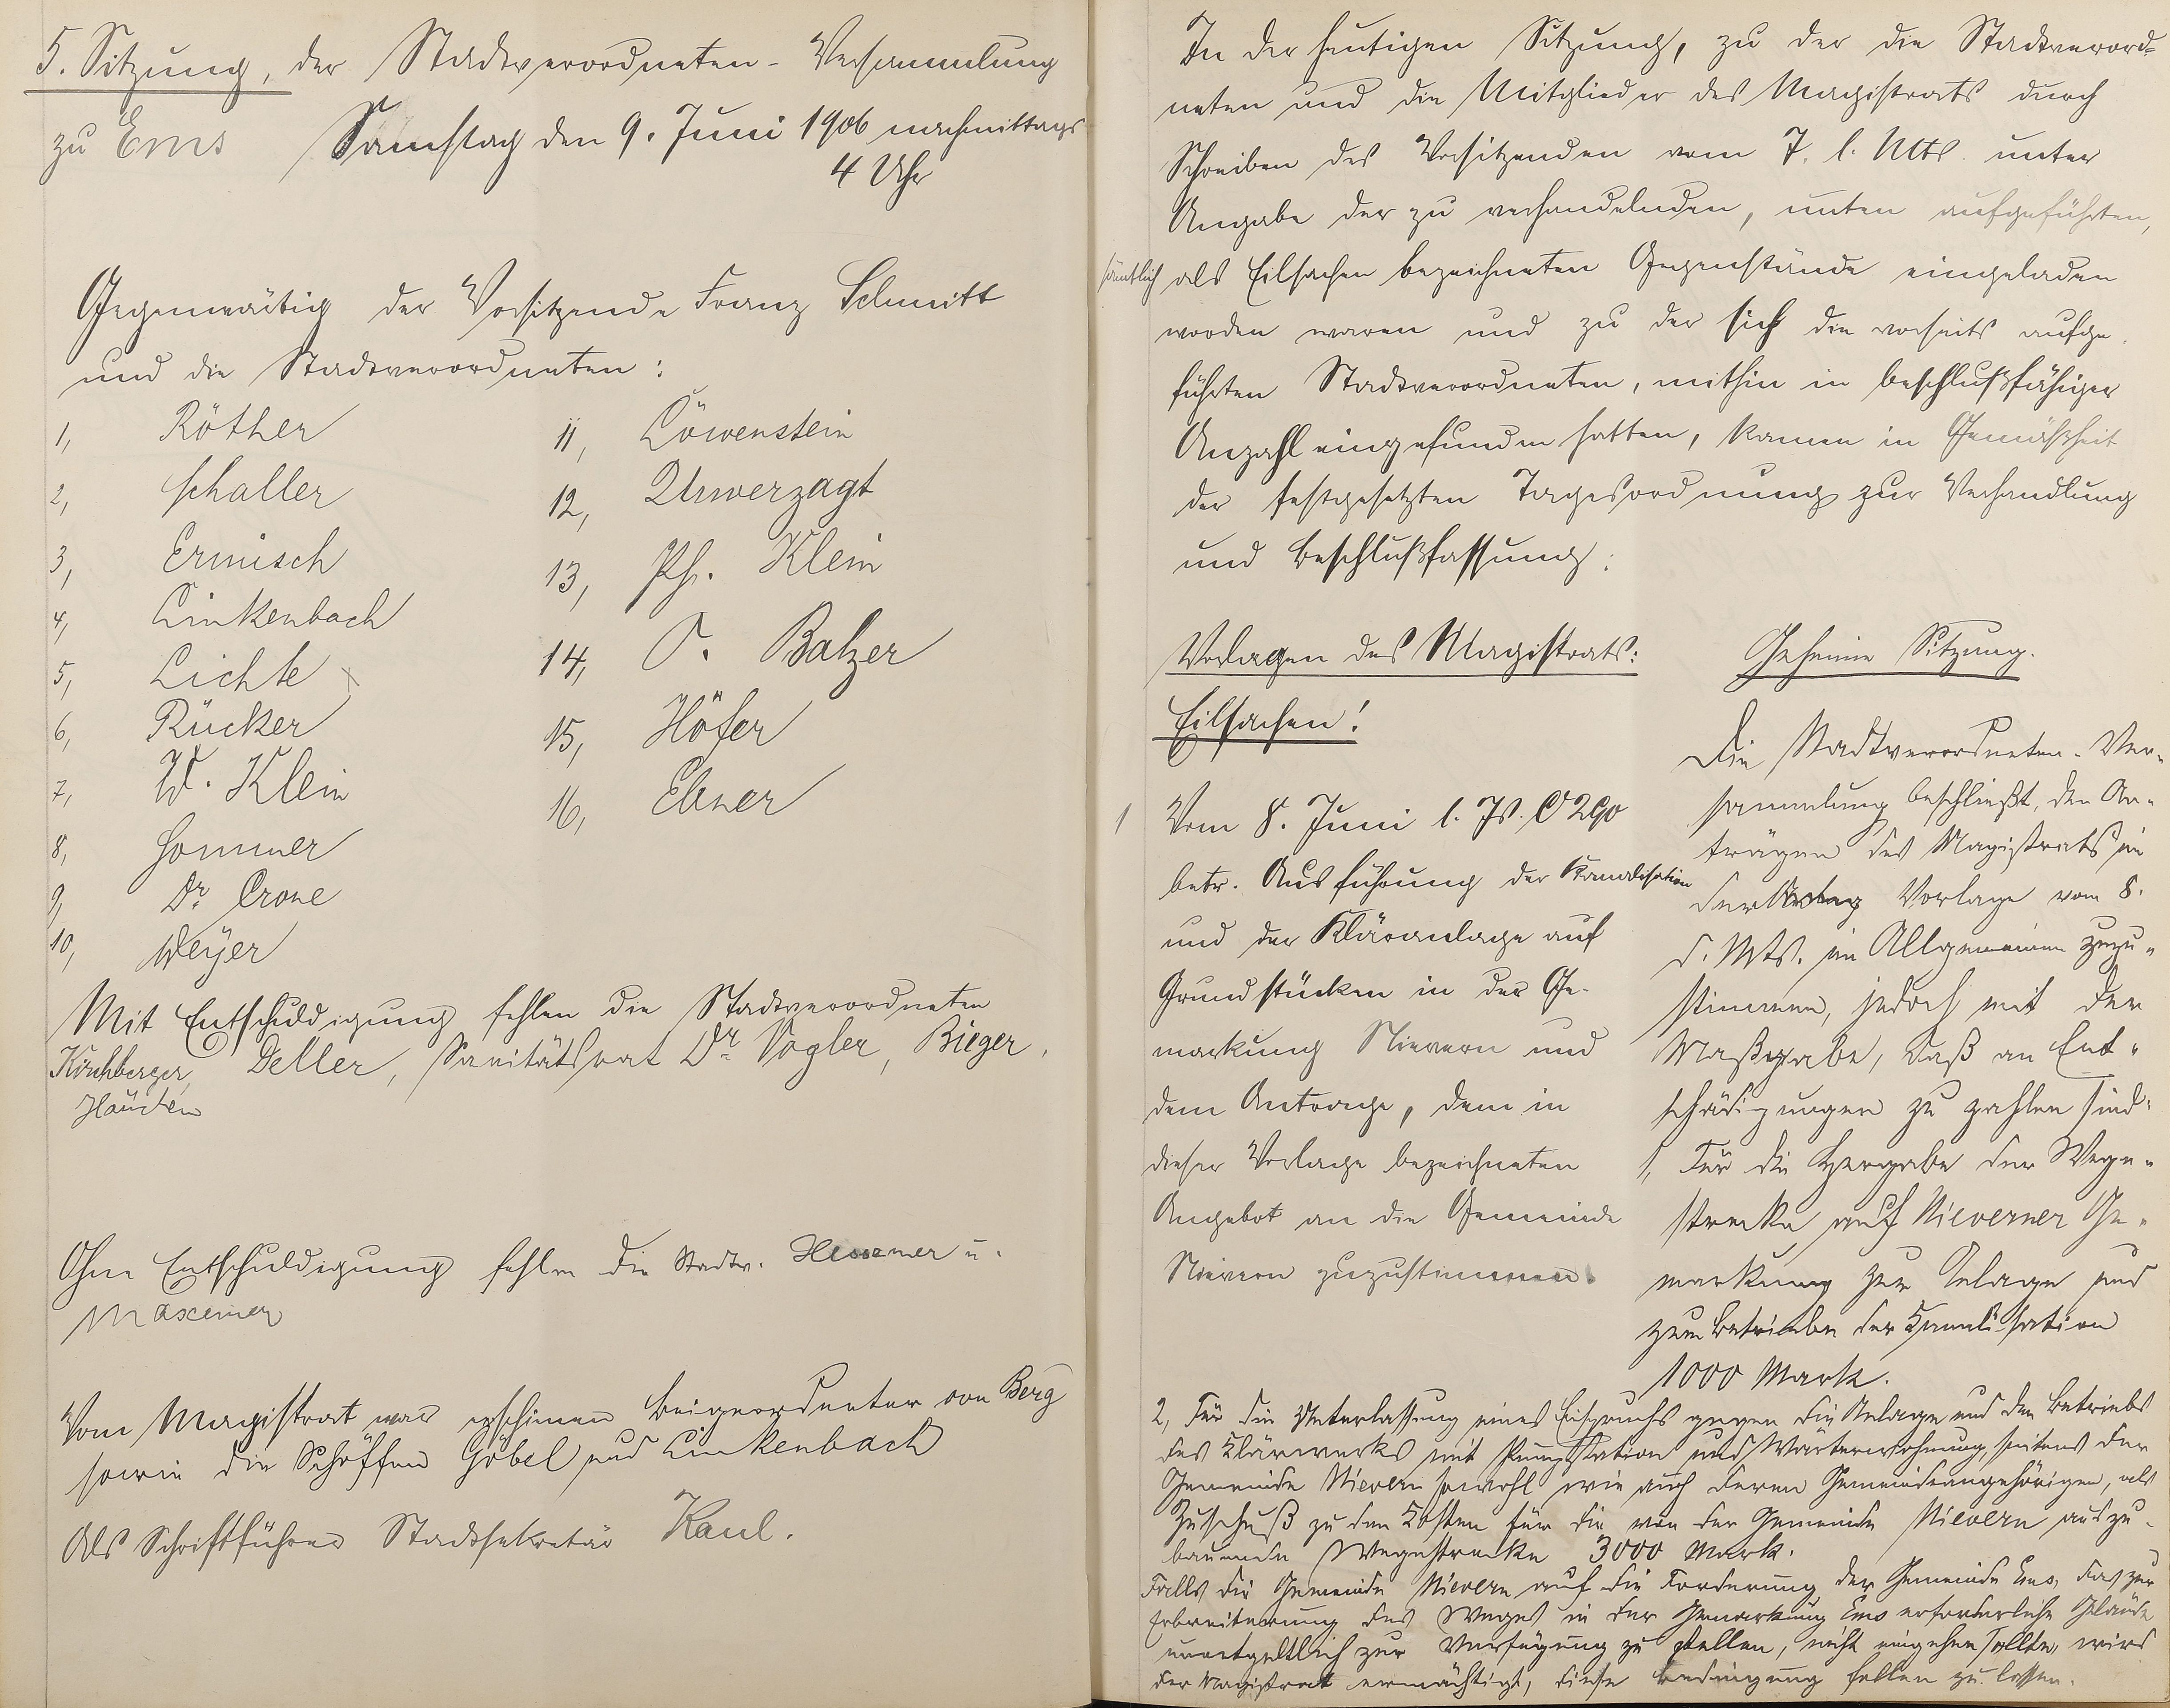 5. Sitzung, der Stadtverordneten-Versammlung
zu Ems Samstag den 9. Juni 1906 nachmittags
4 Uhr
Gegenwärtig der Vorsitzende Franz Schmitt
und die Stadtverordneten:
1, Röther
2, Schaller
3, Ermisch
4, Linkenbach
5, Lichte
6, Rücker
7, W. Klein
8, Sommer
9, Dr. Crone
10, Weyer
11, Löwenstein
12, Unverzagt
13, Ph. Klein
14, O. Balzer
15, Höfer
16, Ebner
Mit Entschuldigung fehlen die Stadtverordneten
Kirchberger, Deller, Sanitätsrat Dr. Vogler, Bieger,
Ohne Entschuldigung fehlen die Stadtv. Hessemer u.
Maxeiner
Vom Magistrat war erschienen Beigeordneter von Berg
sowie die Schöffen Göbel und Linkenbach
Als Schriftführer Stadtsekretär Kaul.
In der heutigen Sitzung, zu der die Stadtverord-
neten und die Mitglieder des Magistrats durch
Schreiben des Vorsitzenden vom 7. l. Mts. unter
Angabe der zu verhandelnden, unten aufgeführten,
sämtlich als Eilsachen bezeichneten Gegenstände eingeladen
worden waren und zu der sich die vorseits aufge-
führten Stadtverordneten, mithin in beschlußfähiger
Anzahl eingefunden hatten, kamen in Gemäßheit
der festgesetzten Tagesordnung zur Verhandlung
und Beschlußfassung:
Vorlagen des Magistrats:
Eilsachen!
1 Vom 8. Juni l. Js. C 290
betr. Ausführung der Kanalisation
und der Kläranlage auf
Grundstücken in der Ge-
markung Nievern und
dem Antrage, dem in
dieser Vorlage bezeichneten
Angebot an die Gemeinde
Nievern zuzustimmen.
Geheime Sitzung.
Die Stadtverordneten-Ver-
sammlung beschließt, den An-
trägen des Magistrats in
der Vorlage vom 8.
d. Mts. im Allgemeinen zuzu-
stimmen, jedoch mit der
Maßgabe, daß an Ent-
schädigungen zu zahlen sind:
1, Für die Hergabe der Wege-
strecke auf Nieverner Ge-
markung zur Anlage und
zum Betriebe der Kanalisation
1000 Mark.
2, Für die Unterlassung eines Einspruchs gegen die Anlage und den Betrieb
des Klärwerks mit Pumpstation und Wärterwohnung, seitens der
Gemeinde Nievern sowohl wie auch deren Gemeindeangehörigen, als
Zuschuß zu den Kosten für die von der Gemeinde Nievern auszu-
bauende Wegestrecke 3000 Mark.
Falls die Gemeinde Nievern auf die Forderung der Gemeinde Ems, das zur
Erbreiterung des Weges in der Gemarkung Ems erforderliche Gelände
unentgeltlich zur Verfügung zu stellen, nicht eingehen sollte, wird
der Magistrat ermächtigt, diese Bedingung fallen zu lassen.